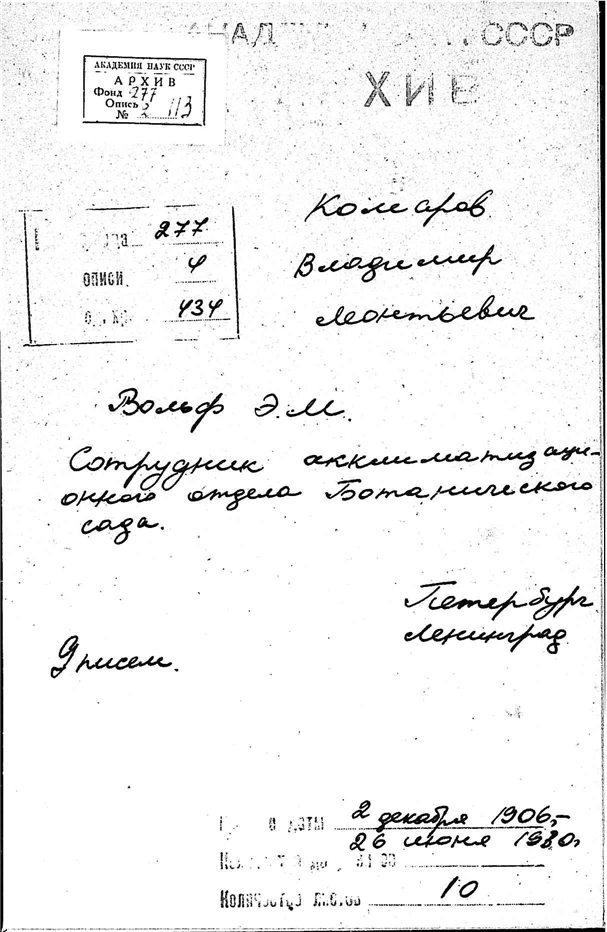 СССР
ХИВ
АКАДЕМИЯ НАУК СССР
АРХИВ
Фонд 277
Опись
№ 113
277
описи 4
434
Комаров
Владимир
Леонтьевич
Вольф Э.М.
Сотрудник акклиматизаци-
онного отдела Ботанического
сада.
Петербург
Ленинград
9 писем.
даты 2 декабря 1906,-
26 июня 1930.
Количество листов 10